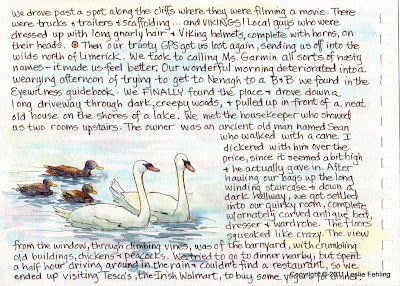 We drove past a spot along the cliffs where they were filming a movie. There
were trucks & trailers & scaffolding ... and VIKINGS! Local guys who were
dressed up with long gnarly hair & Viking helmets, complete with horns, on
their heads. Then our trusty GPS got us lost again, sending us off into the
wilds north of Limerick. We took to calling Ms. Garmin all sorts of nasty
names - it made us feel better. Our wonderful morning deteriorated into a
wearying afternoon of trying to get to Nenagh to a B+B we found in the
Eyewitness guidebook. We FINALLY found the place & drove down a
long driveway through dark, creepy woods, & pulled up in front of a neat
old house on the shores of a lake. We met the housekeeper who showed
us two rooms upstairs. The owner was an ancient old man named Sean
who walked with a cane. I
dickered with him over the
price, since it seemed a bit high
& he actually gave in. After
hauling our bags up the long
winding staircase & down a
dark hallway, we got settled
into our quirky room, complete
w/ornately carved antique bed,
dresser & wardrobe. The floors
squeaked like crazy. The view
from the window, through climbing vines, was of the barnyard, with crumbling
old buildings, chickens & peacocks. We tried to go to dinner nearby, but spent
a half hour driving around in the rain & couldn't find a restaurant, so we
ended up visiting Tesco's, the Irish Walmart, to buy some yogurt for dinner.
Copyright © 2011 Leslie Fehling